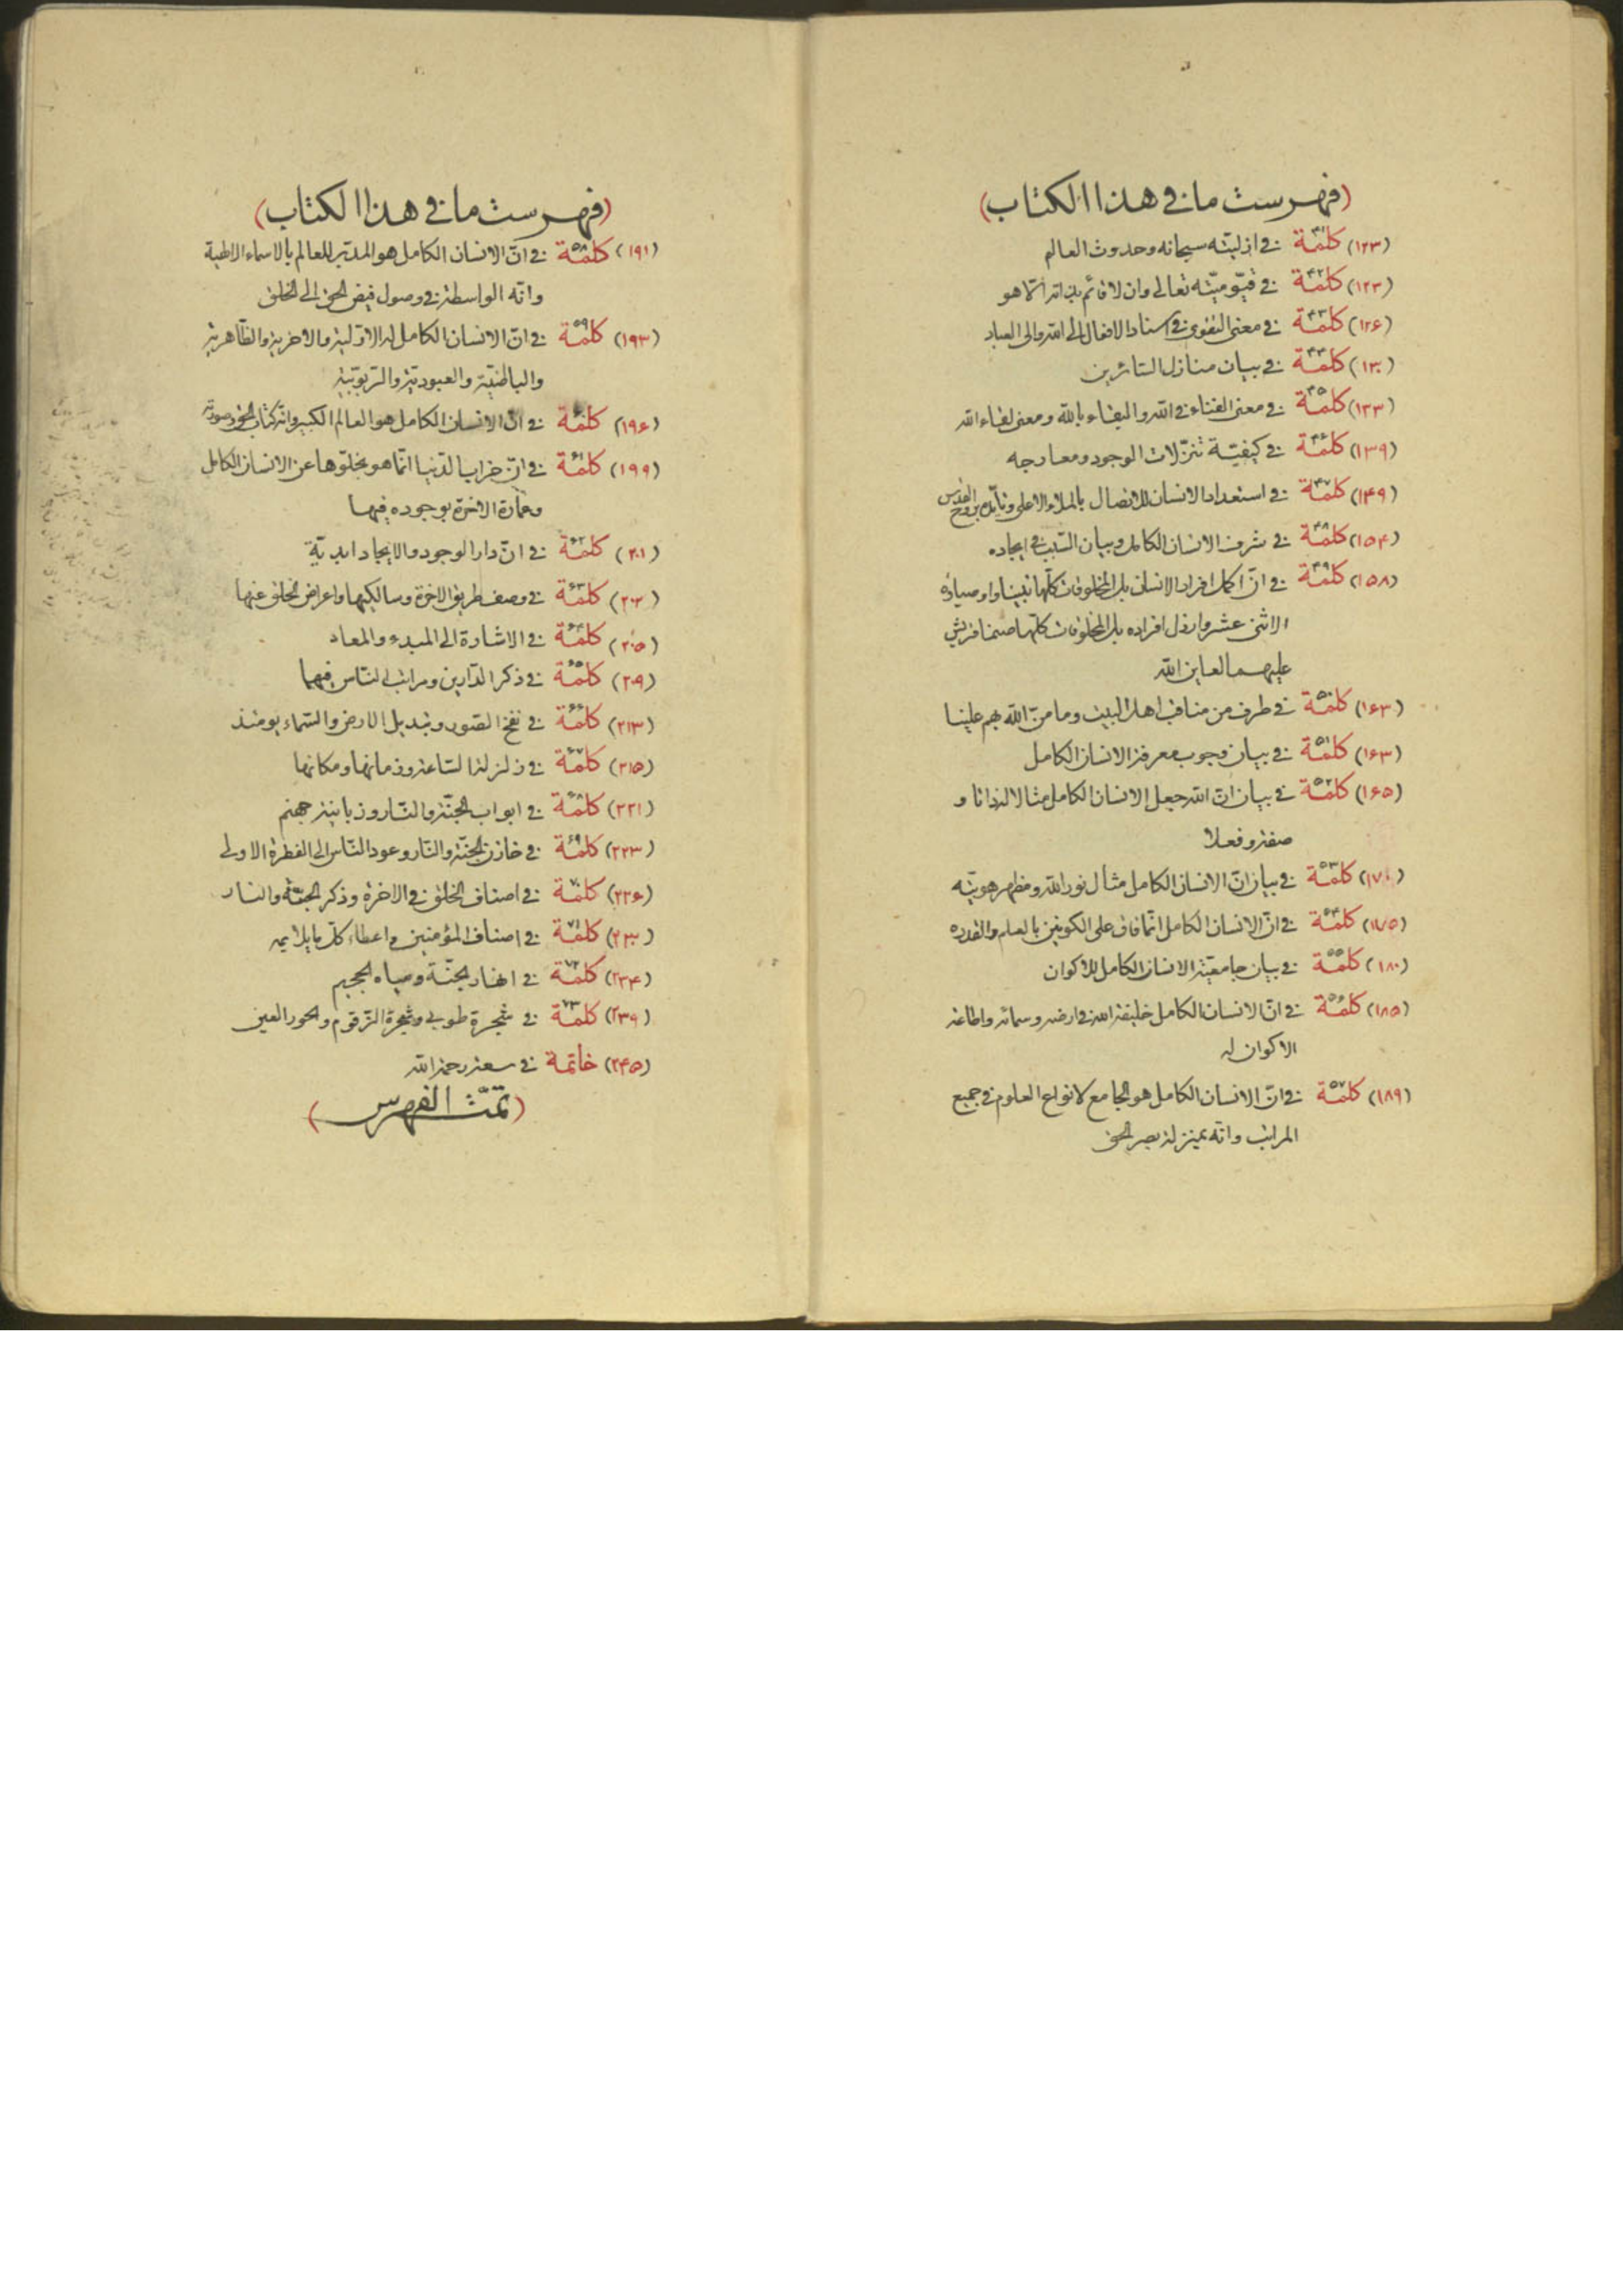 (فهرست ما في هذا الكتاب)
(۱۲۳) كلمة ۴۱ في ازليّته سبحانه وحدوث العالم
(۱۲۳) كلمة ۴۲ في قيّوميّته تعالى وان لا قائم بذاته الّا هو
(۱۲۶) كلمة ۴۳ في معنى التقوى في اسناد الافعال الى الله والى العباد
(۱۳۰) كلمة ۴۴ في بيان منازل السّائرين
(۱۳۳) كلمة ۴۵ في معنى الفناء في الله والبقاء بالله ومعنى لقاء الله
(۱۳۹) كلمة ۴۶ في كيفيّة تنزّلات الوجود ومعارجه
(۱۴۹) كلمة ۴۷ في استعداد الانسان للاتصال بالملاء الاعلى وتأيّده بروح القدس
(۱۵۴) كلمة ۴۸ في شرف الانسان الكامل وبيان السّبب في ايجاده
(۱۵۸) كلمة ۴۹ في انّ اكمل افراد الانسان بل المخلوقات كلّها نبيّنا واوصياؤه
الاثنى عشر وارذل افراده بل المخلوقات كلّها صنما قريش
عليهما لعاين الله
(۱۶۳) كلمة ۵۰ في طرف من مناقب اهل البيت وما منّ الله بهم علينا
(۱۶۳) كلمة ۵۱ في بيان وجوب معرفة الانسان الكامل
(۱۶۵) كلمة ۵۲ في بيان انّ الله جعل الانسان الكامل مثالا له ذاتا و
صفة وفعلا
(۱۷۰) كلمة ۵۳ في بيان انّ الانسان الكامل مثال نور الله ومظهر هويّته
(۱۷۵) كلمة ۵۴ في انّ الانسان الكامل انّما فاق على الكونين بالعلم والقدرة
(۱۸۰) كلمة ۵۵ في بيان جامعيّة الانسان الكامل للاكوان
(۱۸۵) كلمة ۵۶ في انّ الانسان الكامل خليفة الله في ارضه وسمائه واطاعة
الاكوان له
(۱۸۹) كلمة ۵۷ في انّ الانسان الكامل هو الجامع لانواع العلوم في جميع
المراتب وانّه بمنزلة بصر الحق
(فهرست ما في هذا الكتاب)
(۱۹۱) كلمة ۵۸ في انّ الانسان الكامل هو المدبّر للعالم بالاسماء الالهية
وانّه الواسطة في وصول فيض الحق الى الخلق
(۱۹۳) كلمة ۵۹ في انّ الانسان الكامل له الاوّليّة والاخريّة والظّاهريّة
والباطنيّة والعبوديّة والرّبوبيّة
(۱۹۶) كلمة ۶۰ في انّ الانسان الكامل هو العالم الكبير وانّه كتاب الحق وصورته
(۱۹۹) كلمة ۶۱ في انّ خراب الدّنيا انّما هو بخلوّها عن الانسان الكامل
وعمارة الاخرة بوجوده فيها
(۲۰۱) كلمة ۶۲ في انّ دار الوجود والايجاد ابديّة
(۲۰۳) كلمة ۶۳ في وصف طريق الاخرة وسالكيها واعراض الخلق عنها
(۲۰۵) كلمة ۶۴ في الاشارة الى المبدء والمعاد
(۲۰۹) كلمة ۶۵ في ذكر الدّارين ومراتب النّاس فيهما
(۲۱۳) كلمة ۶۶ في نفخ الصّور وتبديل الارض والسّماء يومئذ
(۲۱۵) كلمة ۶۷ في زلزلة السّاعة وزمانها ومكانها
(۲۲۱) كلمة ۶۸ في ابواب الجنّة والنّار وزبانية جهنم
(۲۲۳) كلمة ۶۹ في خازن الجنّة والنّار وعود النّاس الى الفطرة الاولى
(۲۲۶) كلمة ۷۰ في اصناف الخلق في الاخرة وذكر الجنّة والنار
(۲۳۰) كلمة ۷۱ في اصناف المؤمنين واعطاء كلّ ما يلايمه
(۲۳۴) كلمة ۷۲ في انهار الجنّة ومياه الجحيم
(۲۳۹) كلمة ۷۳ في شجرة طوبى وشجرة الزّقوم والحور العين
(۲۴۵) خاتمة في سعة رحمة الله
(تمّت الفهرس)